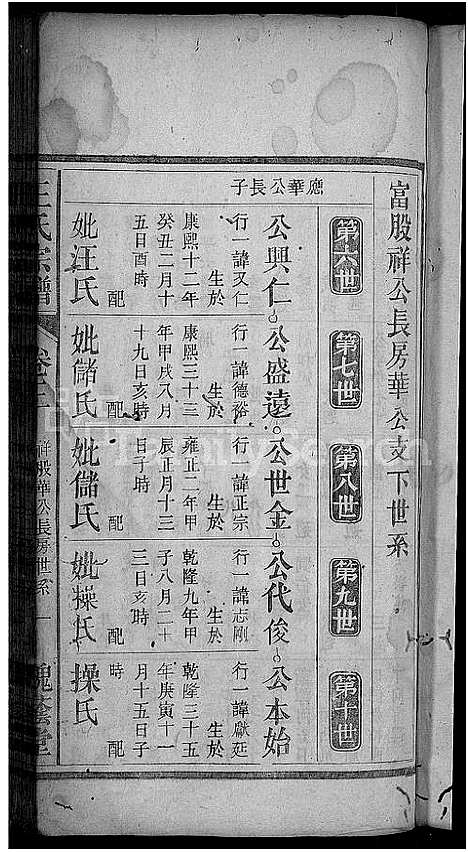 富股祥公長房華公支下世系
第六世
第七世
第八世
第九世
第十世
應華公長子
公興仁
行一諱又仁
生於
康熙十二年
癸丑二月十
五日酉時
配
妣汪氏
公盛遠
行一諱德裕
生於
康熙三十三
年甲戌八月
十九日亥時
配
妣儲氏
公世金
行一諱正宗
生於
雍正二年甲
辰正月十三
日子時
配
妣儲氏
公代俊
行一諱志剛
生於
乾隆九年甲
子八月二十
三日亥時
配
妣操氏
公本始
行一諱獻廷
生於
乾隆三十五
年庚寅十一
月十五日子
時
配
操氏
王氏宗譜
卷二
祥股華公長房世系
一
槐蔭堂